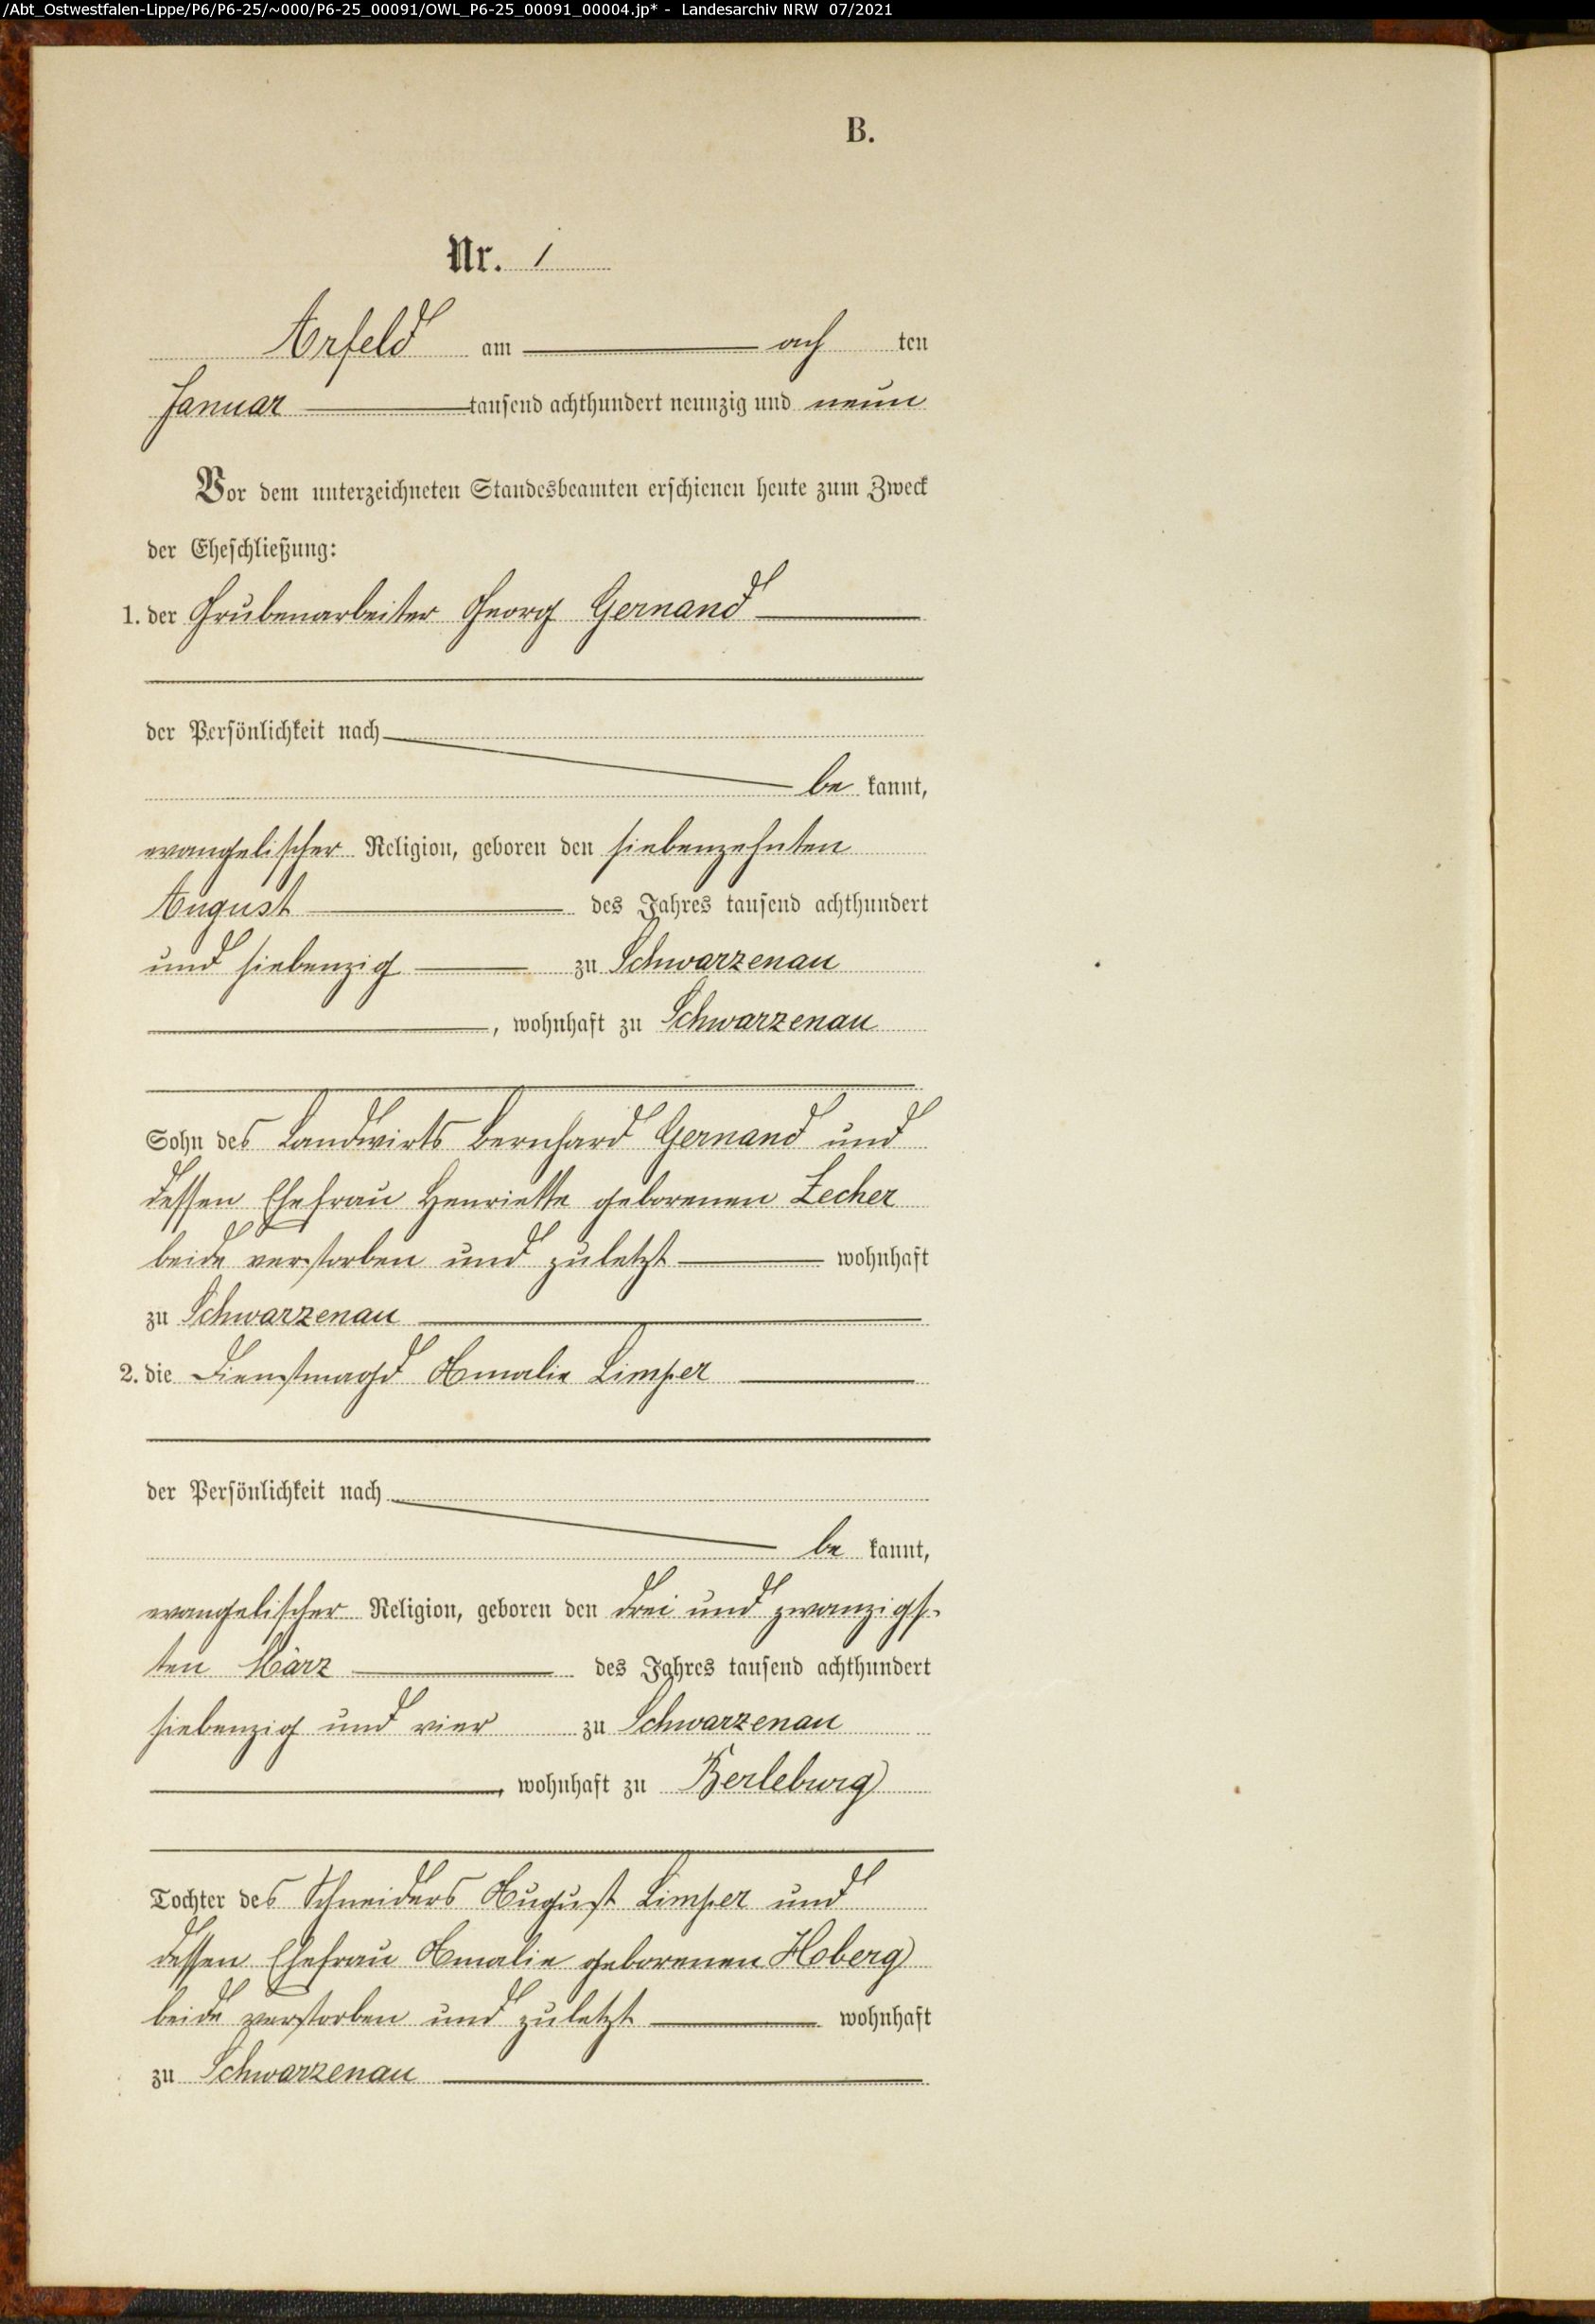 /Abt_Ostwestfalen-Lippe/P6/P6-25/~000/P6-25_00091/OWL_P6-25_00091_00004.jp* - Landesarchiv NRW 07/2021
B.
Nr. 1
Arfeld am ach ten
Januar tausend achthundert neunzig und neun
Vor dem unterzeichneten Standesbeamten erschienen heute zum Zweck
der Eheschließung:
1. der Grubenarbeiter Georg Gernand
der Persönlichkeit nach
be kannt,
evangelischer Religion, geboren den siebenzehnten
August des Jahres tausend achthundert
und siebenzig zu Schwarzenau
, wohnhaft zu Schwarzenau
Sohn des Landwirts Bernhard Gernand und
dessen Ehefrau Henriette geborenen Zecher
beide verstorben und zuletzt wohnhaft
zu Schwarzenau
2. die Dienstmagd Amalie Limper
der Persönlichkeit nach
be kannt,
evangelischer Religion, geboren den drei und zwanzigs-
ten März des Jahres tausend achthundert
siebenzig und vier zu Schwarzenau
, wohnhaft zu Berleburg
Tochter des Schneiders August Limper und
dessen Ehefrau Amalie geborenen Hoberg
beide verstorben und zuletzt wohnhaft
zu Schwarzenau